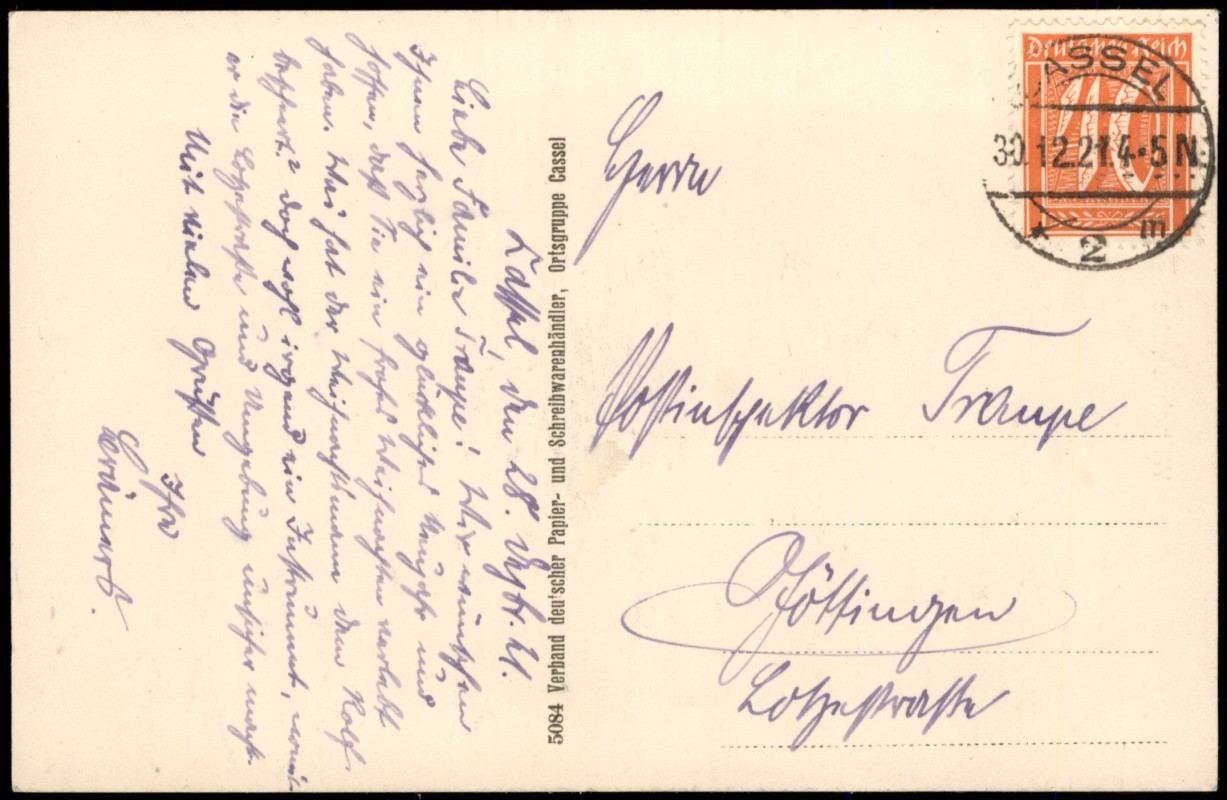 Cassel, den 28. Dezbr. 21.
Liebe Familie Traupe! Wir wünschen
Ihnen herzlich ein glückliches Neujahr und
hoffen, daß Sie ein frohes Weihnachten verlebt
haben. Was hat der Weihnachtsmann dem Rolf
beschert? Doch wohl irgend ein Instrument, womit
er die Lotzestraße und Umgebung unsicher macht.
Mit vielen Grüßen
Ihre
5084 Verband deutscher Papier- und Schreibwarenhändler, Ortsgruppe Cassel
Deutsches Reich
40
CASSEL
30.12.21. 4-5 N.
* 2 m
Herrn
Postinspektor Traupe
Göttingen
Lotzestraße